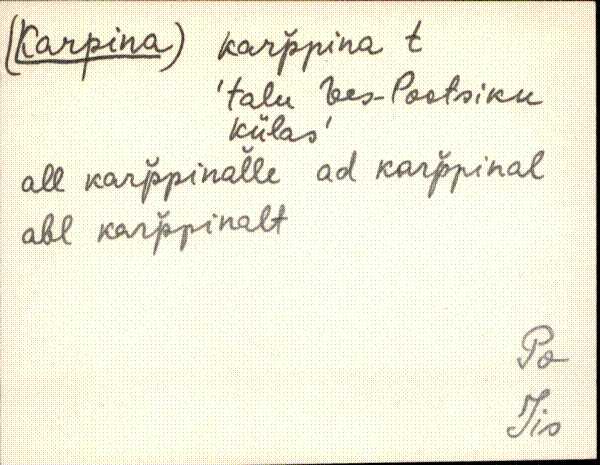 (Karpina) karp̆pina t
'talu Ves-Pootsiku
külas'
all karp̆pinal̆le ad karp̆pinal
abl karp̆pinalt
Po
Jis